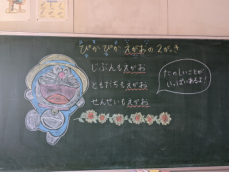 ぴかぴか えがおの2がっき
じぶんもえがお
ともだちもえがお
せんせいもえがお
たのしいことが
いっぱいあるよ!